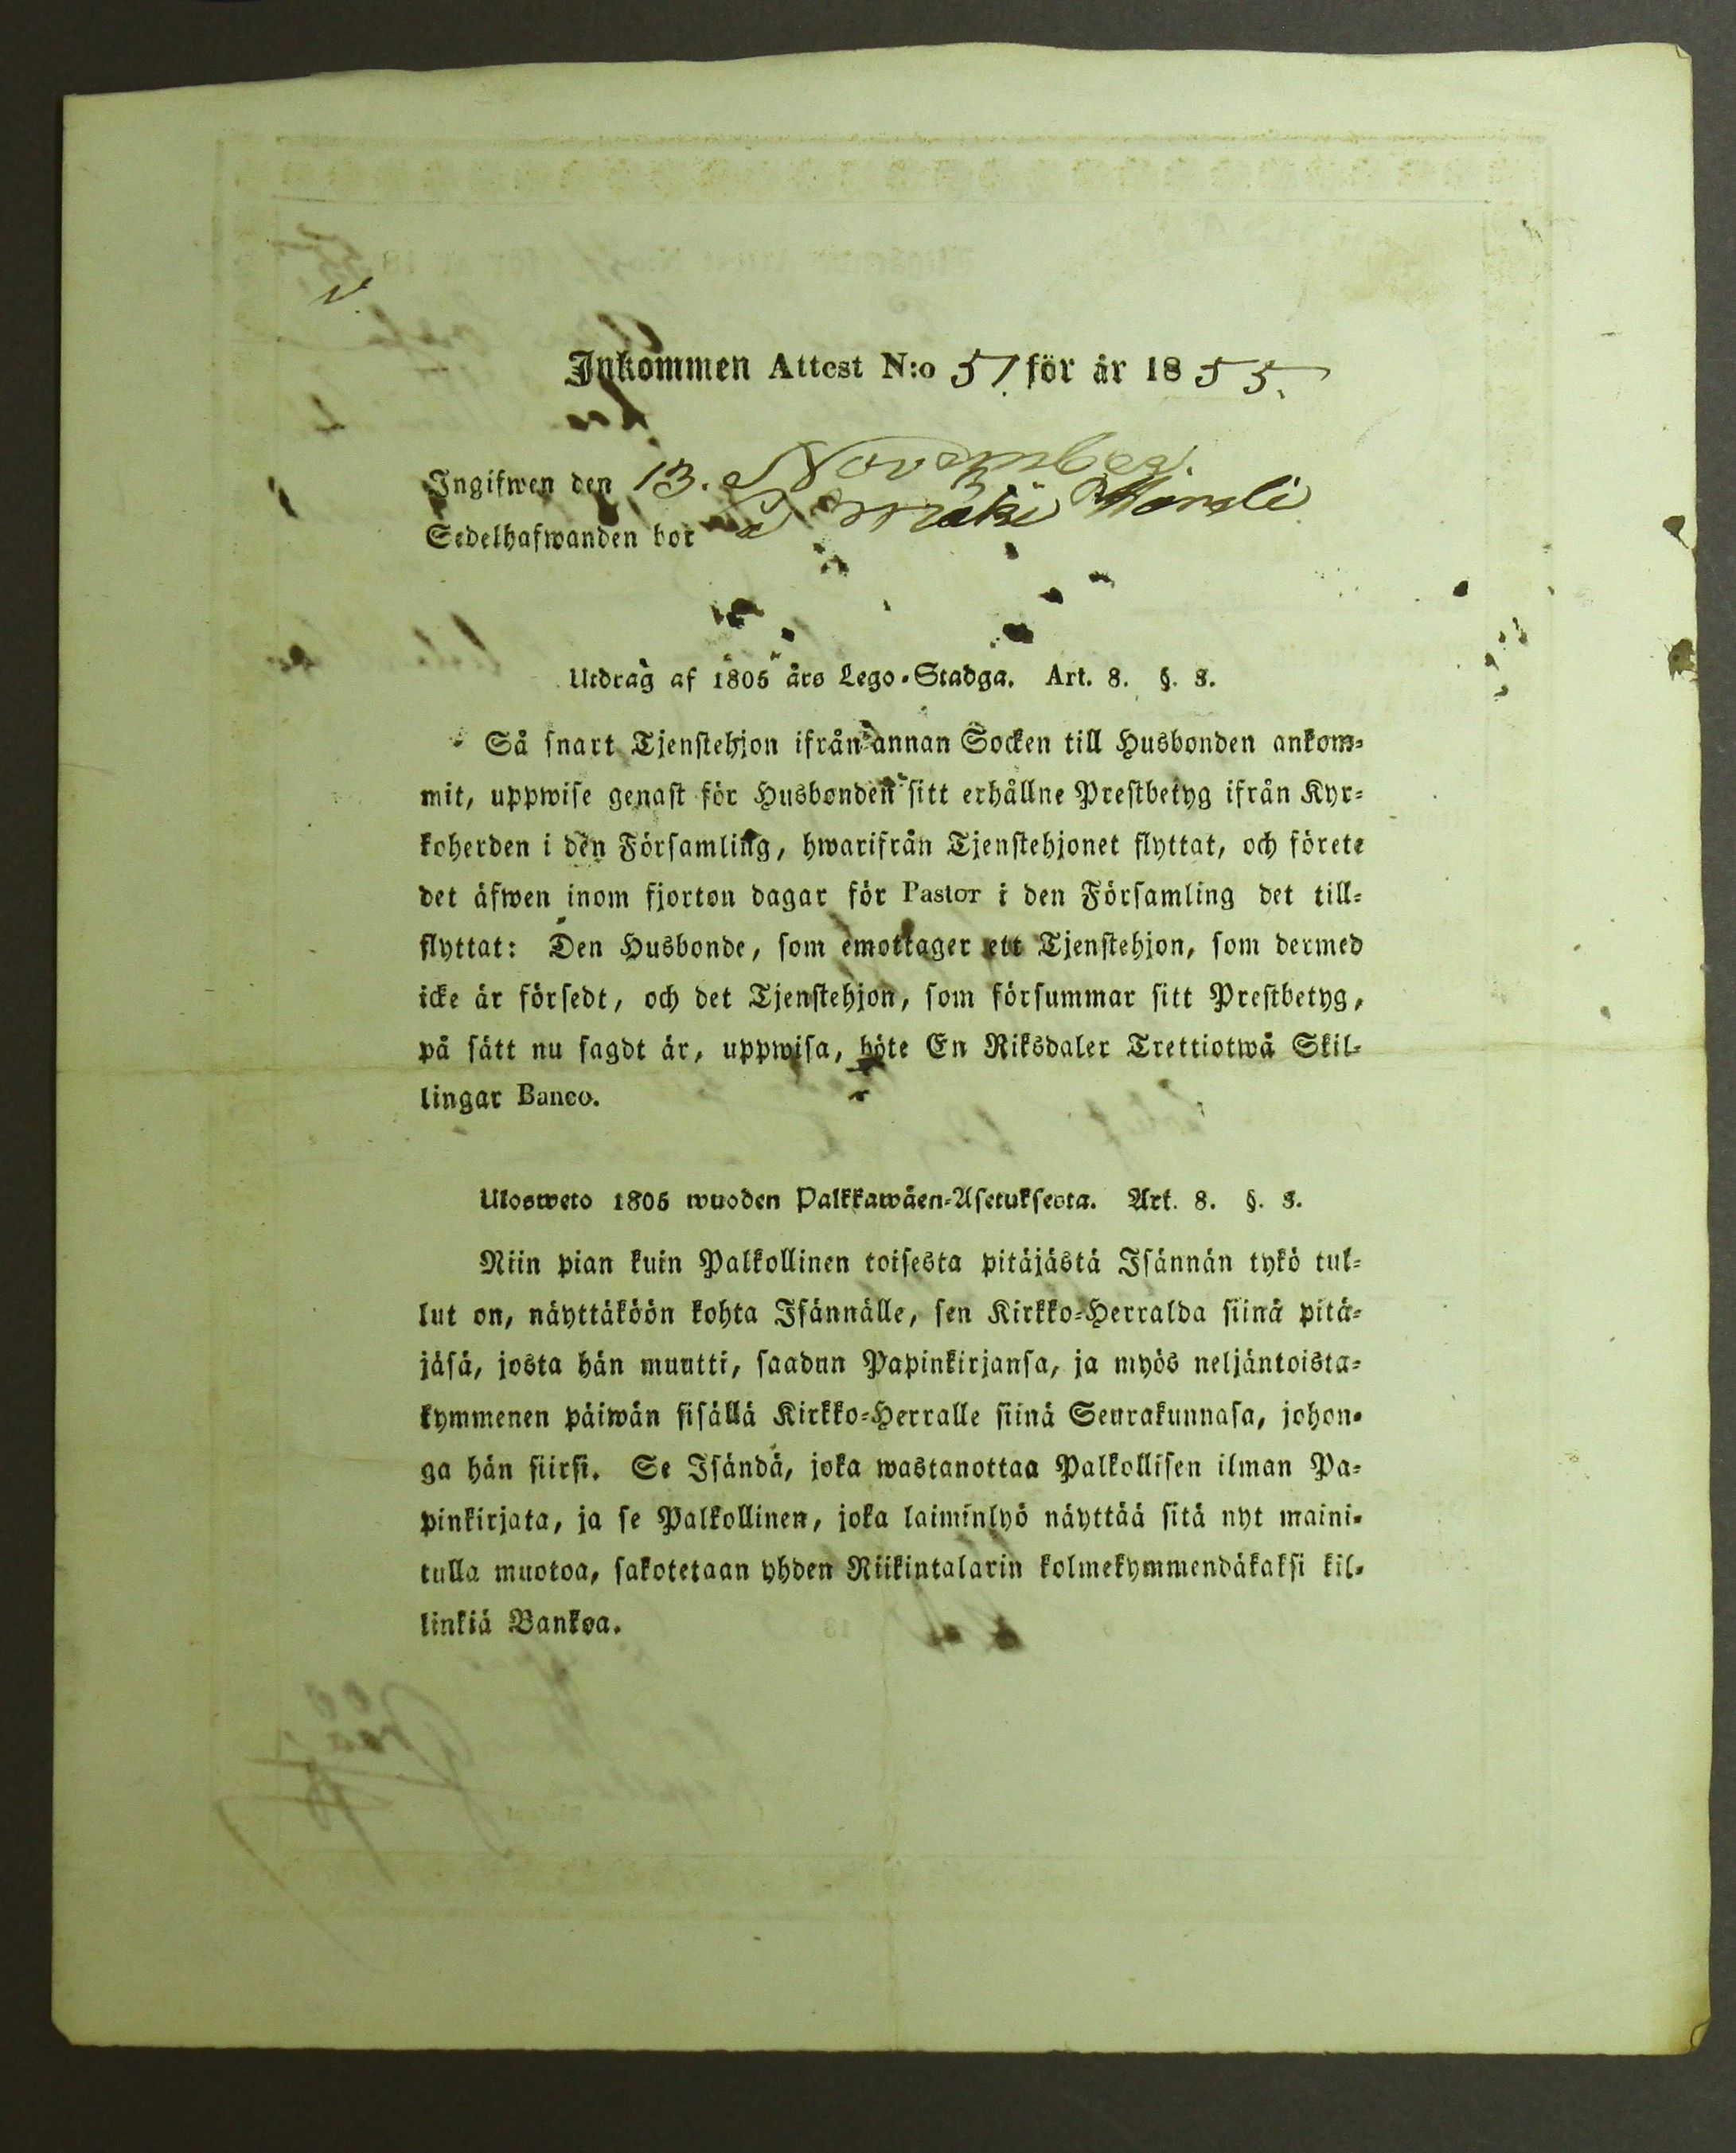 Inkommen Attest N:o 51 för år 1855.
Ingifwen den 13. November.
Sedelhafwanden bor
Utdrag af 1805 års Lego-Stadga. Art. 8. §. 3.
Så snart Tjenstehjon ifrån annan Socken till Husbonden ankom-
mit, uppwise genast för Husbonden sitt erhållne Prestbetyg ifrån Kyr-
koherden i den Församling, hwarifrån Tjenstehjonet flyttat, och förete
det äfwen inom fjorton dagar för Pastor i den Församling det till-
flyttat: Den Husbonde, som emottager ett Tjenstehjon, som dermed
icke är försedt, och det Tjenstehjon, som försummar sitt Prestbetyg,
på sätt nu sagdt är, uppwisa, böte En Riksdaler Trettiotwå Skil-
lingar Banco.
Ulosweto 1805 wuoden Palkkawäen-Asetuksesta. Art. 8. §. 3.
Niin pian kuin Palkollinen toisesta pitäjästä Isännän tykö tul-
lut on, näyttäköön kohta Isännälle, sen Kirkko-Herralda siinä pitä-
jäsä, josta hän muutti, saadun Papinkirjansa, ja myös neljäntoista-
kymmenen päiwän sisällä Kirkko-Herralle siinä Seurakunnasa, johon-
ga hän siirsi. Se Isändä, joka wastanottaa Palkollisen ilman Pa-
pinkirjata, ja se Palkollinen, joka laiminlyö näyttää sitä nyt maini-
tulla muotoa, sakotetaan yhden Riikintalarin kolmekymmendäkaksi kil-
linkiä Bankoa.